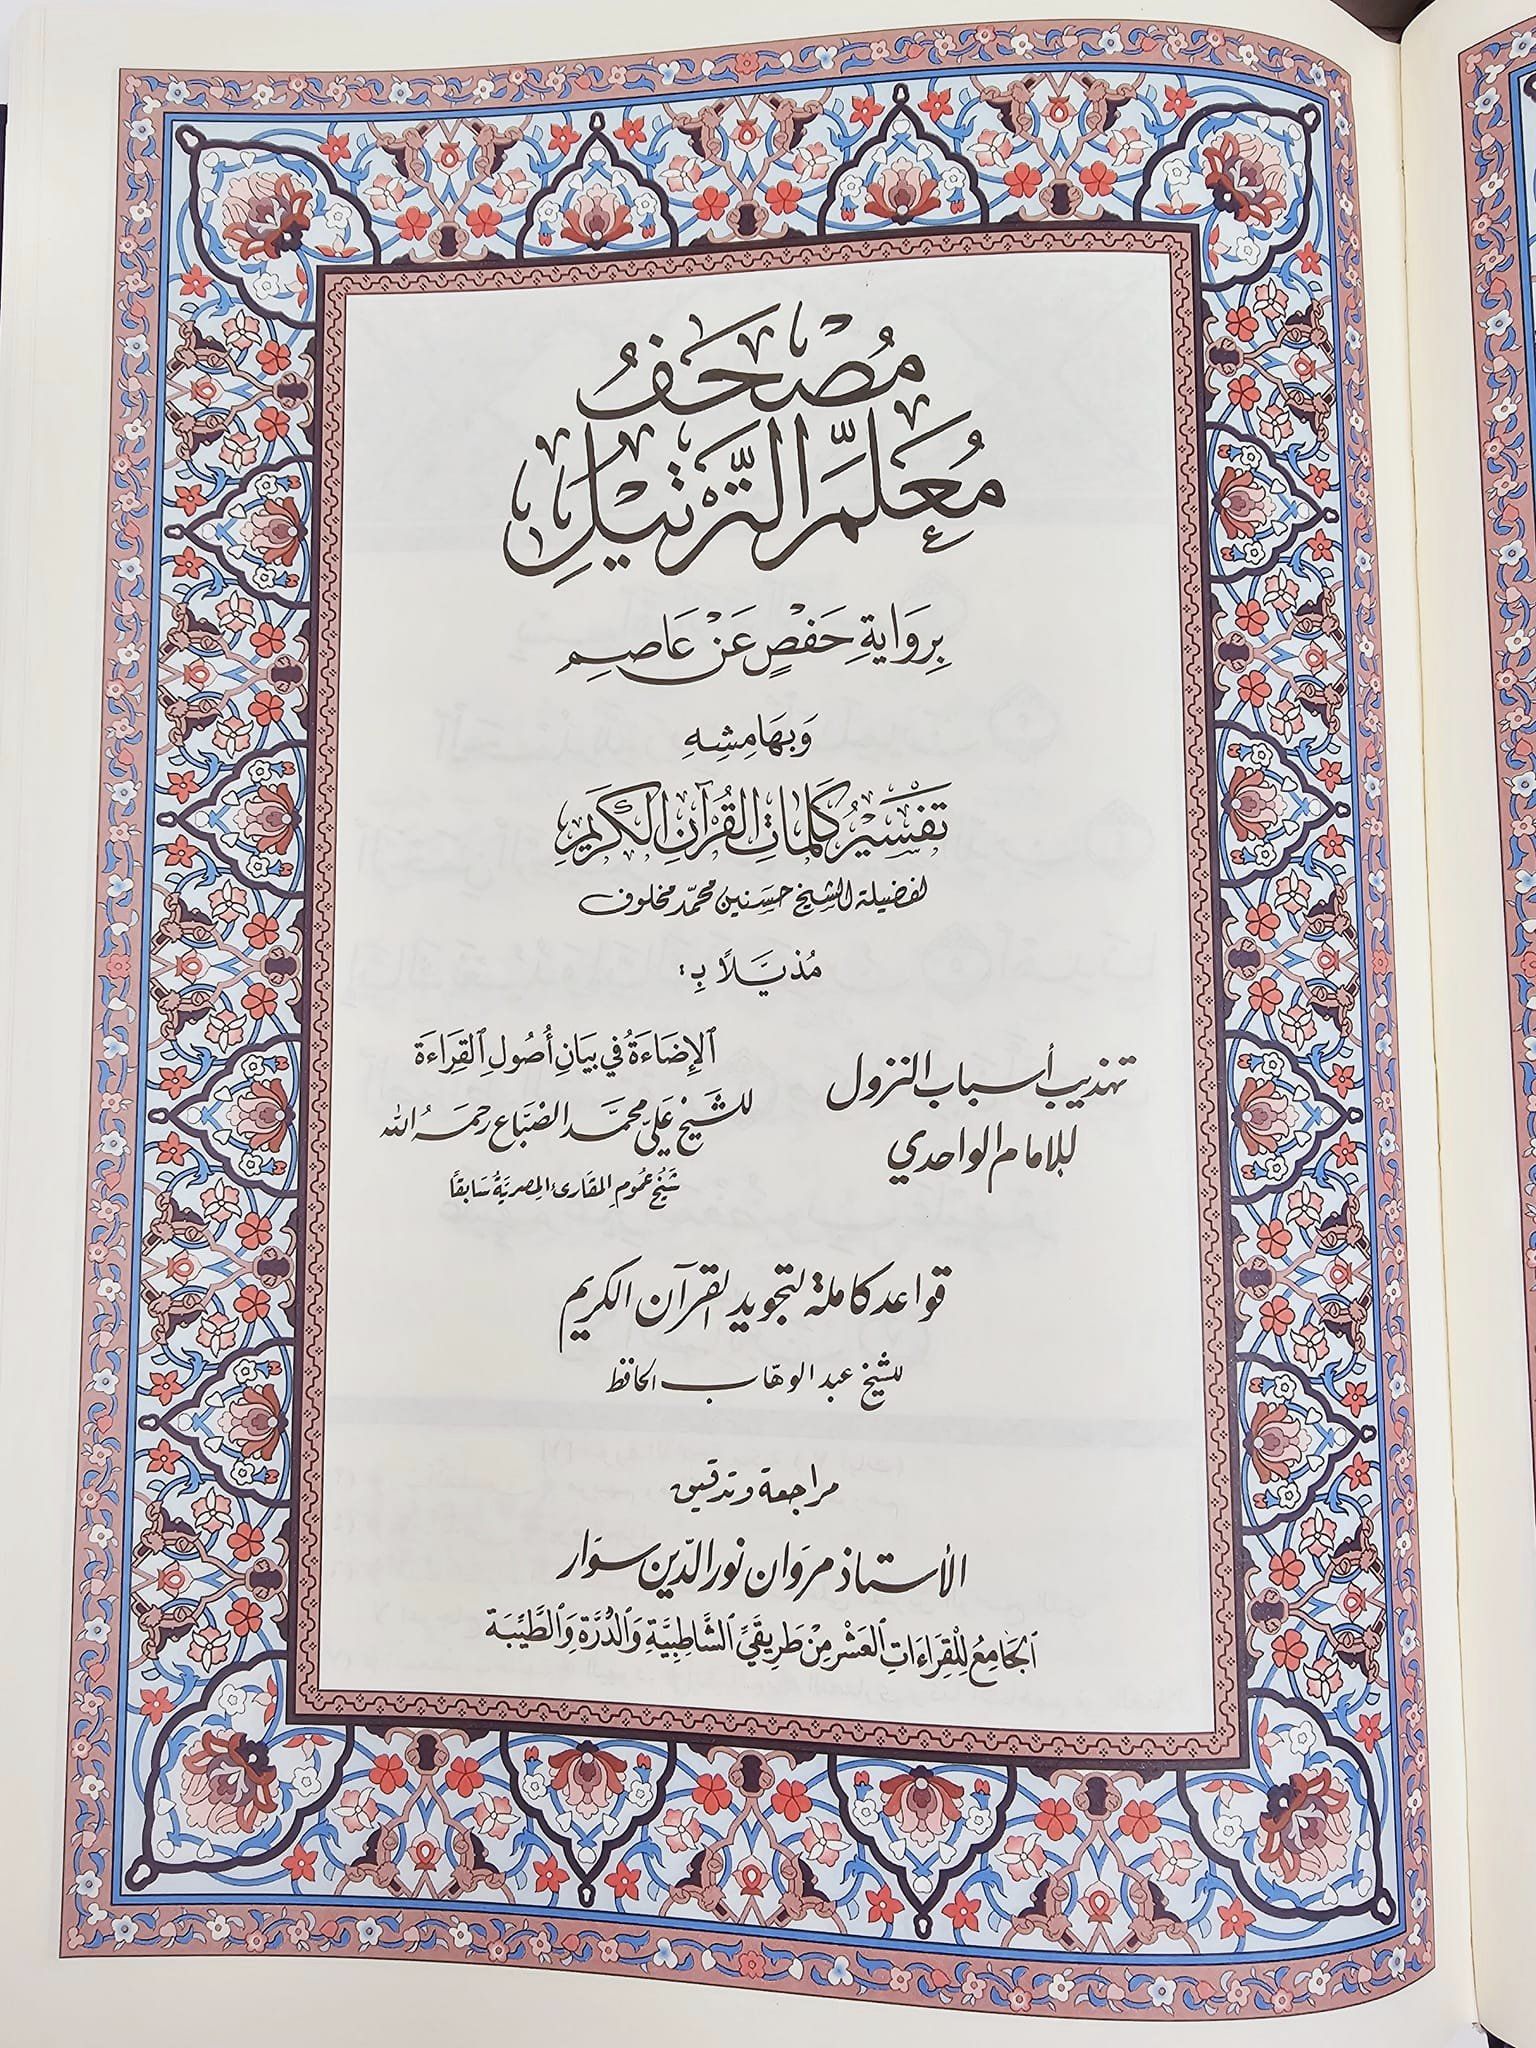 مُصْحَفُ
مُعَلِّمِ التَّرْتِيلِ
بِرِوَايَةِ حَفْصٍ عَنْ عَاصِمٍ
وَبِهَامِشِهِ
تَفْسِيرُ كَلِمَاتِ القُرْآنِ الكَرِيمِ
لفضيلة الشيخ حسنين محمّد مخلوف
مُذَيَّلاً بِ:
تهذيب أسباب النزول
للإمام الواحدي
الإِضَاءَةُ فِي بَيَانِ أُصُولِ القِرَاءَةِ
للشيخ علي محمّد الضبّاع رحمه الله
شَيْخُ عُمُومِ المَقَارِئِ المِصْرِيَّةِ سَابِقًا
قواعد كاملة لتجويد القرآن الكريم
للشيخ عبد الوهّاب الحافظ
مراجعة وتدقيق
الأستاذ مروان نور الدّين سوار
الجَامِعُ لِلْقِرَاءَاتِ العَشْرِ مِنْ طَرِيقَيِّ الشَّاطِبِيَّةِ وَالدُّرَّةِ وَالطَّيِّبَةِ